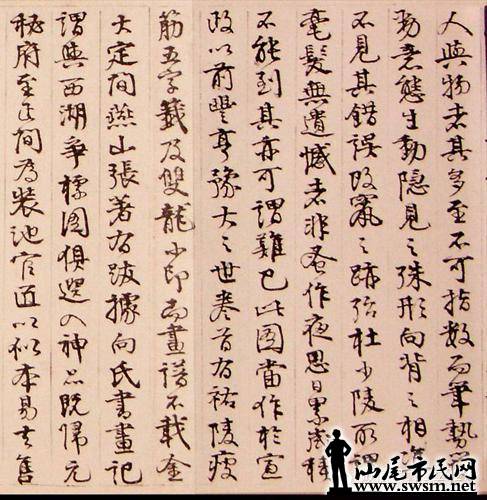 人與物者其多至不可指數而筆勢簡
勁意態生動隱見之殊形向背之相準
不見其錯誤改竄之跡殆杜少陵所謂
毫髮無遺憾者非蚤作夜思日累歲積
不能到其亦可謂難已此圖當作於宣
政以前豐亨豫大之世卷首有祐陵瘦
筋五字籤及雙龍小印而畫譜不載金
大定間燕山張著有跋據向氏書畫記
謂與西湖爭標圖俱選入神品既歸元
秘府至正間為裝池官匠以似本易去售
汕尾市民网
www.swsm.net